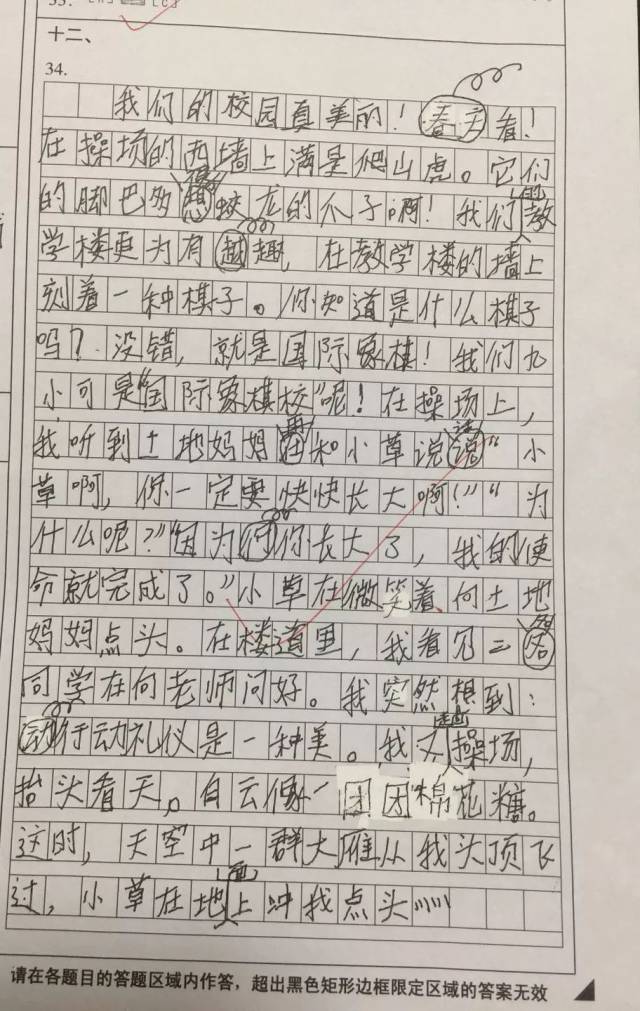 十二、
34.
我们的校园真美丽！春天看！
在操场的西墙上满是爬山虎。它们
的脚巴多像蛟龙的爪子啊！我们的教
学楼更为有趣，在教学楼的墙上
刻着一种棋子。你知道是什么棋子
吗？没错，就是国际象棋！我们九
小可是“国际象棋校”呢！在操场上，
我听到土地妈妈再和小草说话“小
草啊，你一定要快快长大啊！”“为
什么呢？”“因为你长大了，我的使
命就完成了。”小草在微笑着、向土地
妈妈点头。在楼道里，我看见二名
同学在向老师问好。我突然想到：
行动礼仪是一种美。我又走操场，
抬头看天，白云像一团团棉花糖。
这时，天空中一群大雁从我头顶飞
过，小草在地面上冲我点头……
请在各题目的答题区域内作答，超出黑色矩形边框限定区域的答案无效